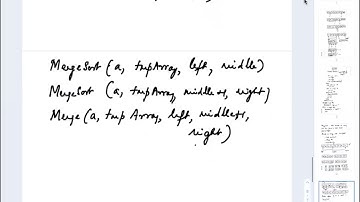 MergeSort (a, tmpArray, left, middle)
MergeSort (a, tmpArray, middle+1, right)
Merge (a, tmp Array, left, middle+1,
right)